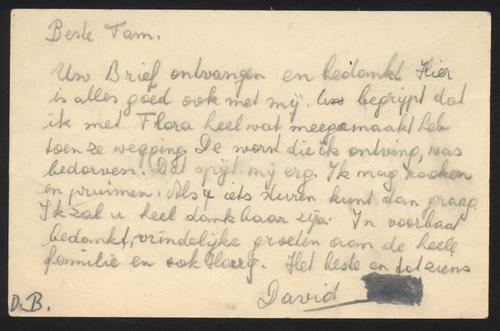 Beste Fam.
Uw Brief ontvangen en bedankt Hier
is alles goed ook met mij. U begrijpt dat
ik met Flora heel wat meegemaakt heb
toen ze wegging. De worst die ik ontving, was
bedorven. Dat spijt mij erg. Ik mag rooken
en pruimen. Als U iets sturen kunt dan graag
Ik zal u heel dankbaar zijn. In voorbaat
bedankt, vrindelijke groeten aan de heele
familie en ook Harry. Het beste en tot ziens
David
D.B.